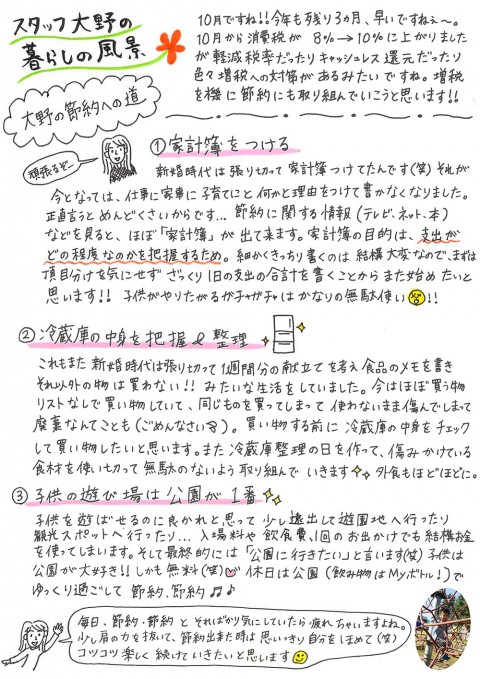 スタッフ大野の
暮らしの風景
10月ですね!!今年も残り3ヵ月、早いですねぇ〜。
10月から消費税が 8%→10%に上がりました
が軽減税率だったりキャッシュレス還元だったり
色々増税への対策があるみたいですね。増税
を機に節約にも取り組んでいこうと思います!!
大野の節約への道
頑張るぞ〜
①家計簿をつける
新婚時代は張り切って家計簿つけてたんです(笑)それが
今となっては、仕事に家事に子育てにと何かと理由をつけて書かなくなりました。
正直言うとめんどくさいからです…節約に関する情報(テレビ、ネット、本)
などを見ると、ほぼ「家計簿」が出て来ます。家計簿の目的は、支出が
どの程度なのかを把握するため。細かくきっちり書くのは結構大変なので、まずは
項目分けを気にせずざっくり1日の支出の合計を書くことからまた始めたいと
思います!!子供がやりたがるガチャガチャはかなりの無駄使い!!
②冷蔵庫の中身を把握&整理
これもまた新婚時代は張り切って1週間分の献立てを考え食品のメモを書き
それ以外の物は買わない!!みたいな生活をしていました。今はほぼ買う物
リストなしで買い物していて、同じものを買ってしまって使わないまま傷んでしまって
廃棄なんてことも(ごめんなさい)。買い物する前に冷蔵庫の中身をチェック
して買い物したいと思います。また冷蔵庫整理の日を作って、傷みかけている
食材を使い切って無駄のないよう取り組んでいきます 外食もほどほどに。
③子供の遊び場は公園が1番
子供を遊ばせるのに良かれと思って少し遠出して遊園地へ行ったり
観光スポットへ行ったり…入場料や飲食費、1回のお出かけでも結構お金
を使ってしまいます。そして最終的には「公園に行きたい」と言います(笑)子供は
公園が大好き!!しかも無料(笑) 休日は公園(飲み物はMyボトル!)で
ゆっくり過ごして節約、節約♫♪
毎日、節約・節約とそればかり気にしていたら疲れちゃいますよね。
少し肩の力を抜いて、節約出来た時は思いっきり自分をほめて(笑)
コツコツ楽しく続けていきたいと思います